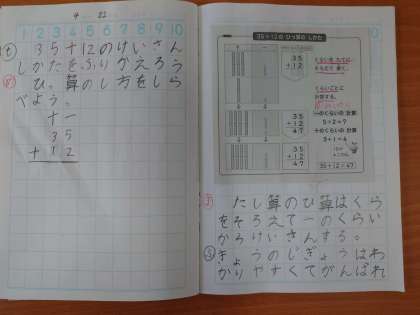 4 22
1 2 3 4 5 6 7 8 9 10
も 35+12のけいさん
しかたをふりかえろう
め ひっ算のし方をしら
べよう。
十一
35
+12
35+12の ひっ算の しかた
35
+12
くらいを たてに
くらいごとに
計算する。
35
+12
47
一のくらいの 計算
5+2=7
十のくらいの 計算
3+1=4
35
+12
47
35+12=47
10
ま たし算のひっ算はくら
をそろえて一のくらい
からけいさんする。
ふ きょうのじぎょうはわ
かりやすくてがんばれ